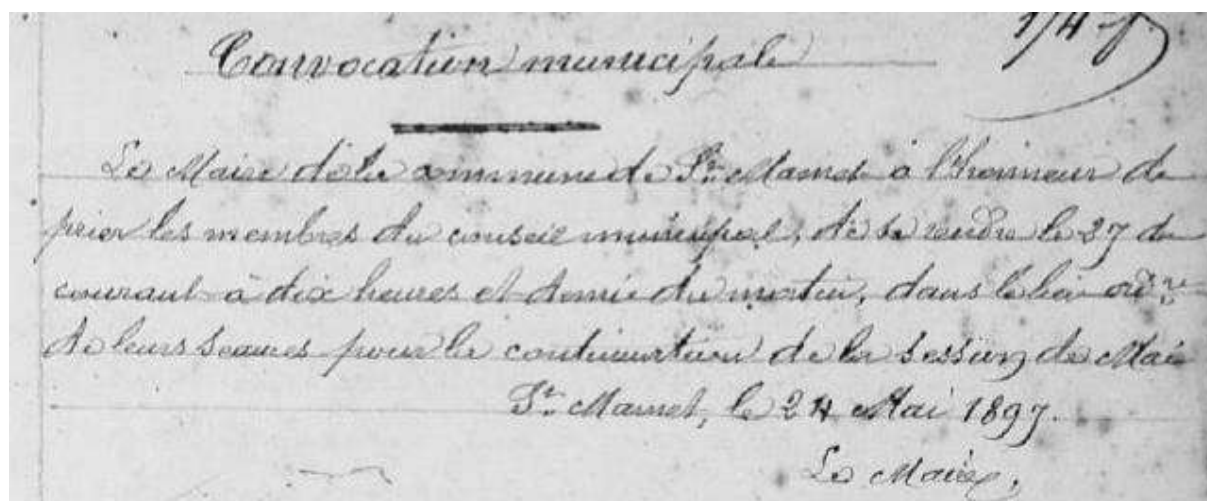 174 f.
Convocation municipale
Le Maire de la commune de St Mamet à l'honneur de
prier les membres du conseil municipal, de se rendre le 27 du
courant à dix heures et demie du matin, dans le lieu ordre
de leurs seances pour la continuation de la session de Mai
St Mamet, le 24 Mai 1897.
Le Maire,